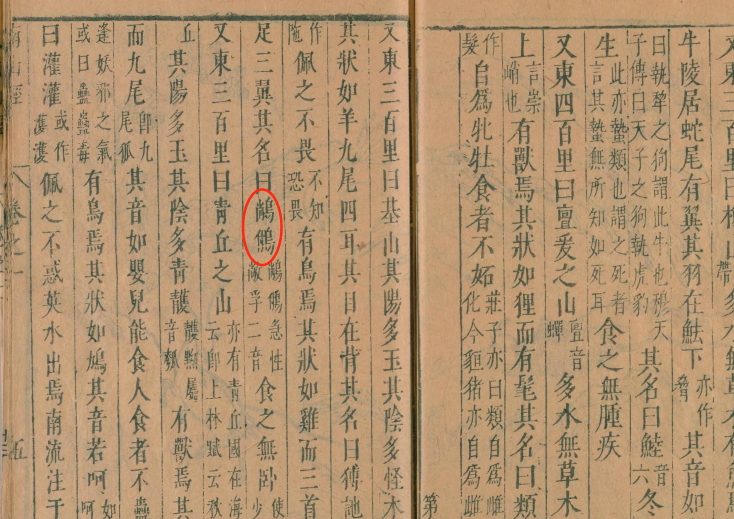 又東三百里曰柢山帶多水無草木有魚焉
牛陵居蛇尾有翼其羽在魼下亦作脅其音如
曰執犂之狗謂此牛也穆天子傳曰天子之狗執虎豹其名曰鯥音六冬
生此亦蟄類也謂之死者言其蟄無所知如死耳食之無腫疾
又東四百里曰亶爰之山亶音蟬多水無草木
上言崇峭也有獸焉其狀如狸而有髦其名曰類
作髮自爲牝牡食者不妬莊子亦曰類自爲雌化今貆猪亦自爲雌
第
又東三百里曰基山其陽多玉其陰多怪木
其狀如羊九尾四耳其目在背其名曰猼訑
作佩之不畏不知恐畏有鳥焉其狀如雞而三首
足三翼其名曰𪁺𩿧𪁺𩿧急性敞孚二音食之無臥使少
又東三百里曰青丘之山亦有青丘國在海云卽上林賦云秋
丘其陽多玉其陰多青䨼䨼黝屬音瓠有獸焉其
而九尾卽九尾狐其音如嬰兒能食人食者不蠱
逢妖邪之氣或曰蠱蠱毒有鳥焉其狀如鳩其音若呵如呵
曰灌灌或作濩濩佩之不惑英水出焉南流注于
南山經 卷之一 五